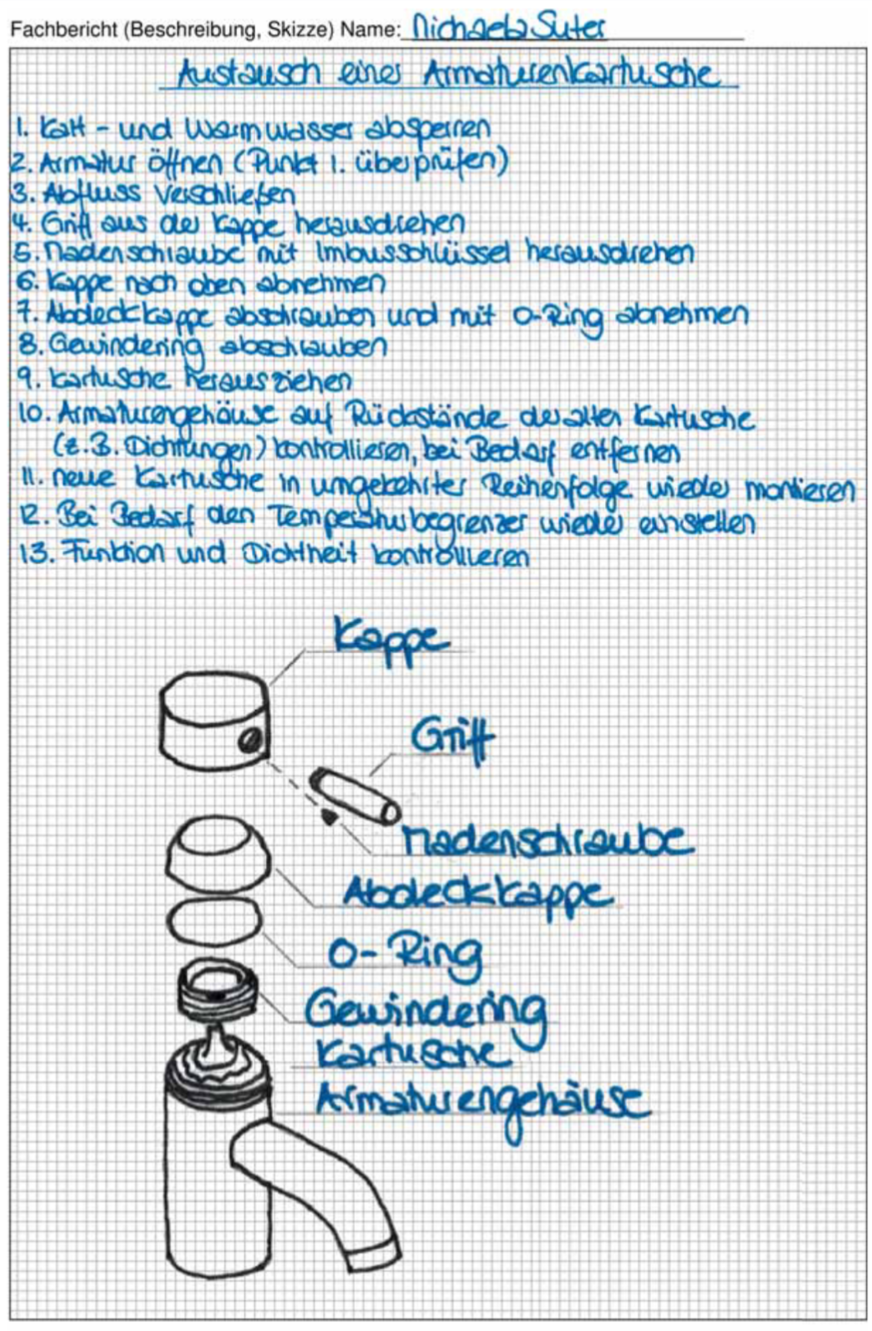 Fachbericht (Beschreibung, Skizze) Name: Michaela Suter
Austausch einer Armaturenkartusche
1. Kalt- und Warmwasser absperren
2. Armatur öffnen (Punkt 1. überprüfen)
3. Abfluss verschließen
4. Griff aus der Kappe herausdrehen
5. Madenschraube mit Imbusschlüssel herausdrehen
6. Kappe nach oben abnehmen
7. Abdeckkappe abschrauben und mit O-Ring abnehmen
8. Gewindering abschrauben
9. Kartusche herausziehen
10. Armaturengehäuse auf Rückstände der alten Kartusche
(z.B. Dichtungen) kontrollieren, bei Bedarf entfernen
11. neue Kartusche in umgekehrter Reihenfolge wieder montieren
12. Bei Bedarf den Temperaturbegrenzer wieder einstellen
13. Funktion und Dichtheit kontrollieren
Kappe
Griff
Madenschraube
Abdeckkappe
O-Ring
Gewindering
Kartusche
Armaturengehäuse